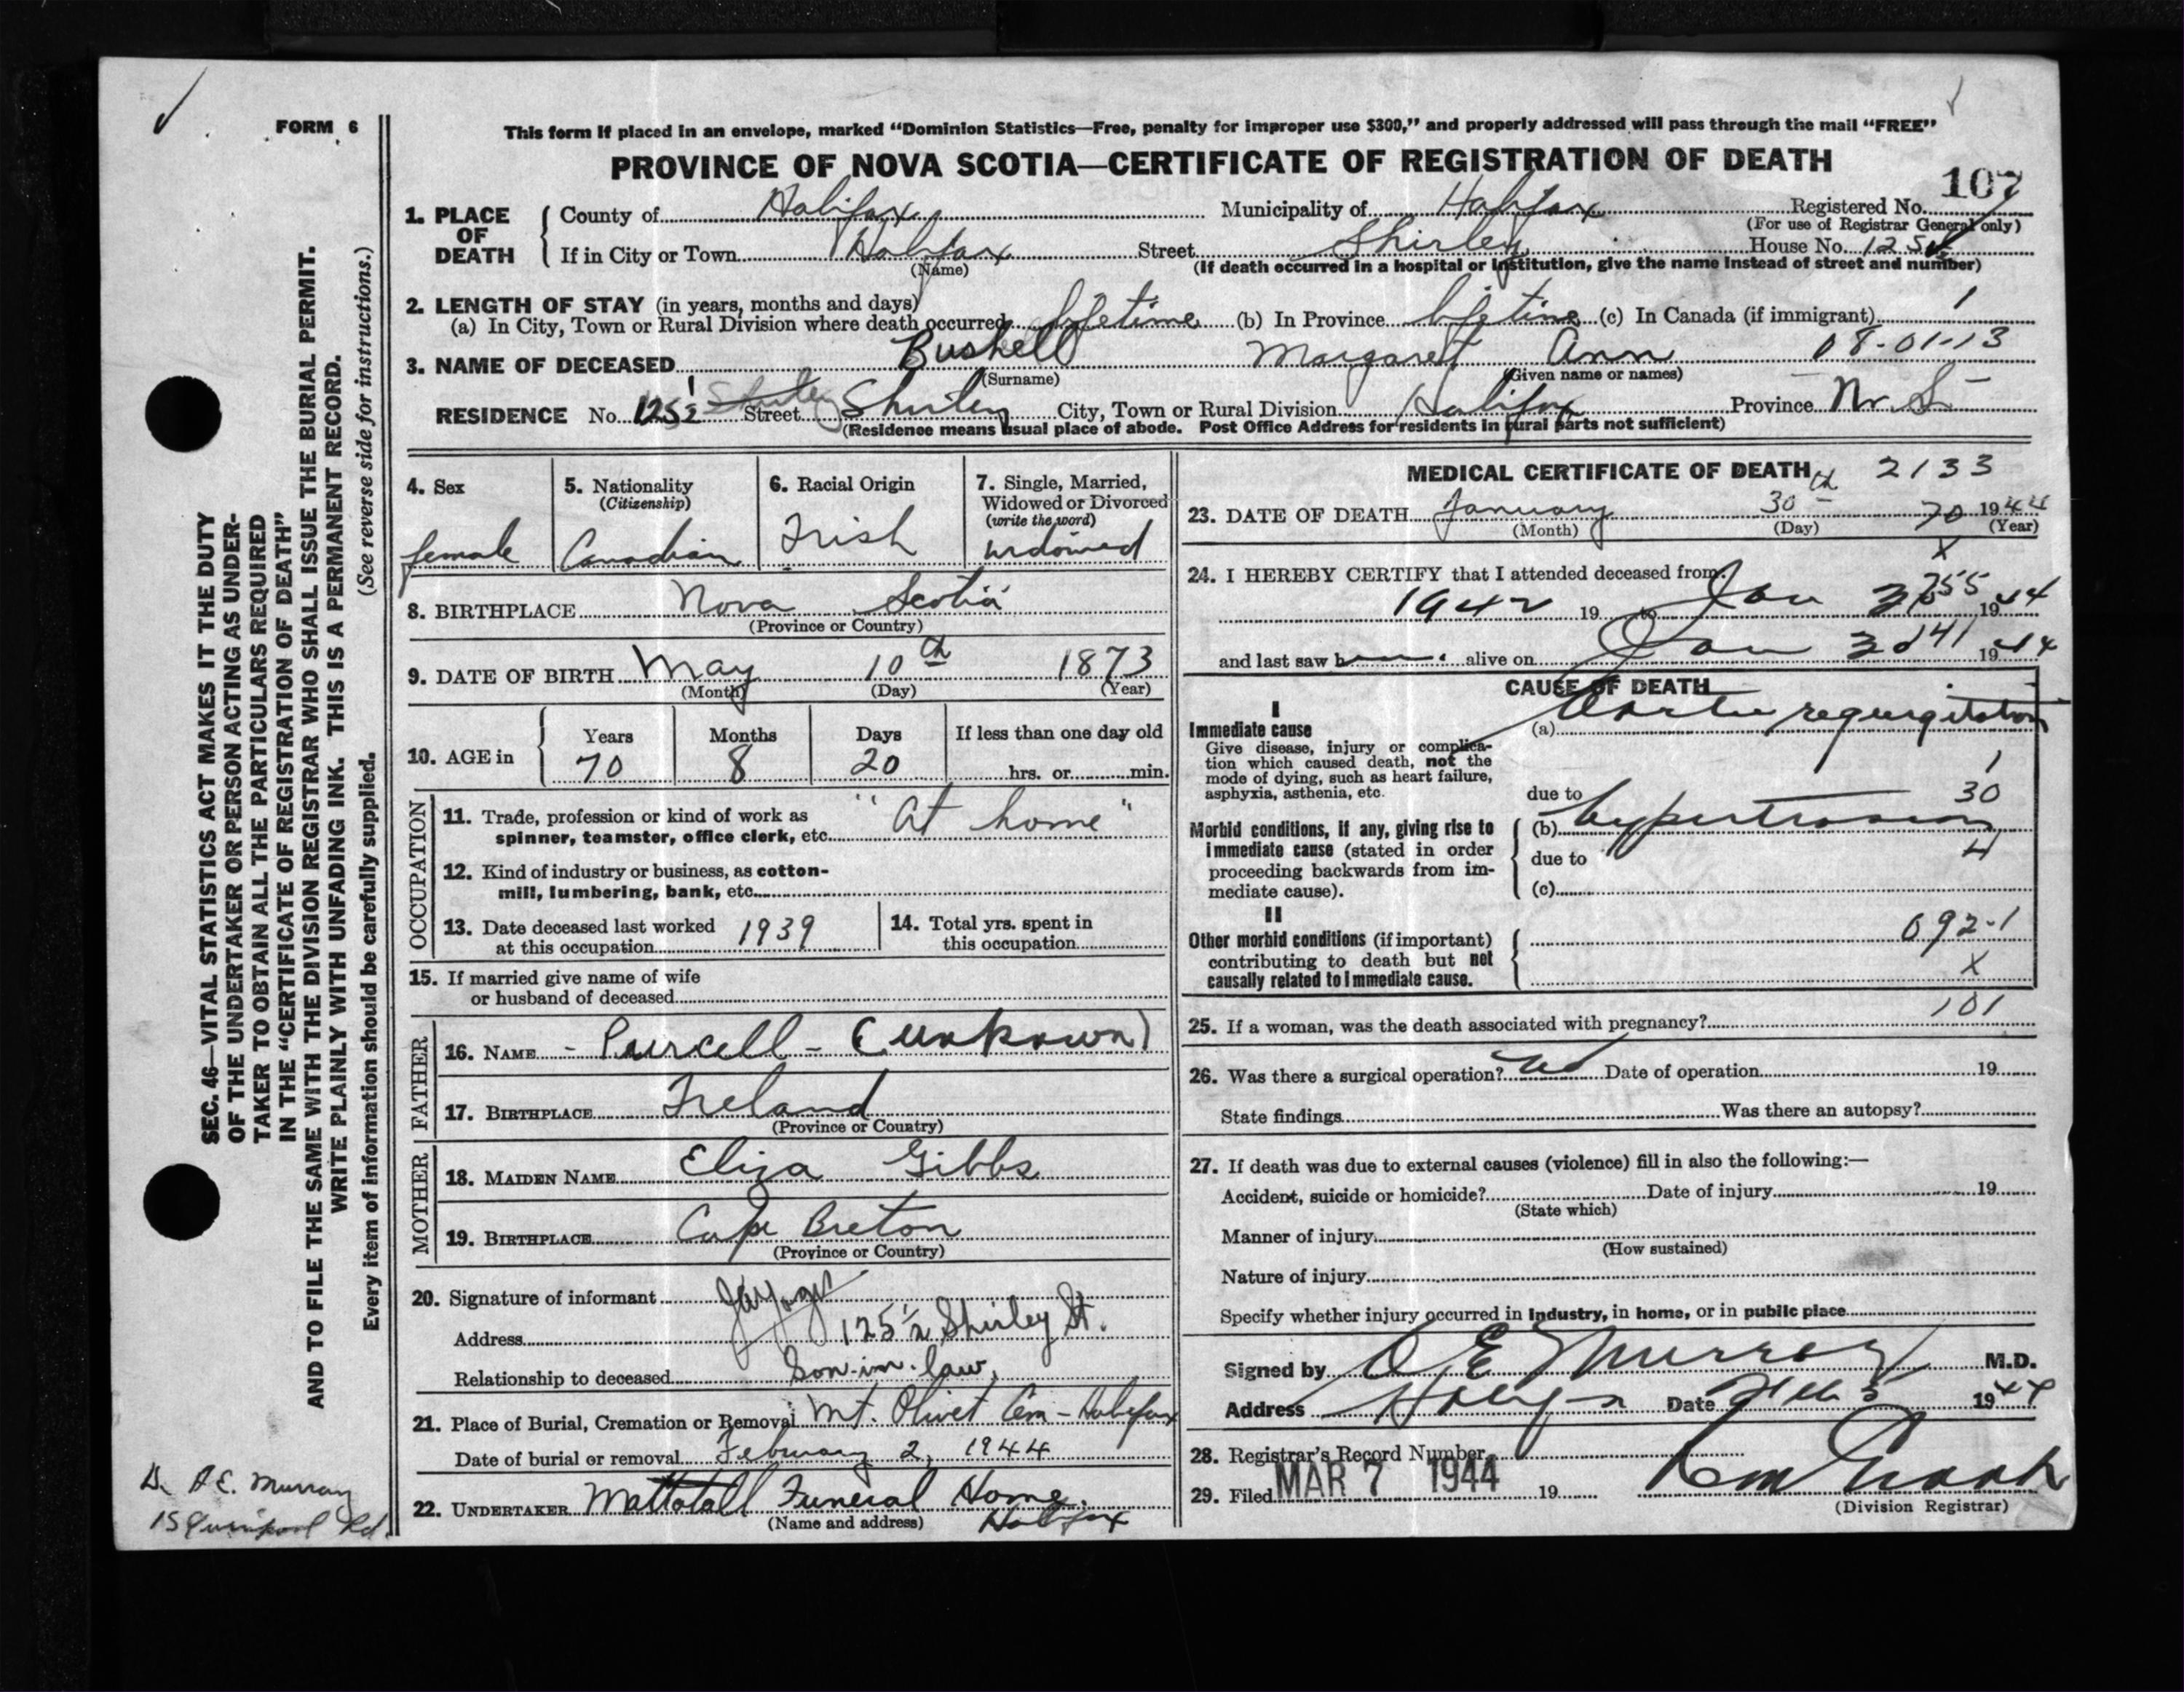 FORM 6
This form if placed in an envelope, marked “Dominion Statistics—Free, penalty for improper use $300,” and properly addressed will pass through the mail “FREE”
PROVINCE OF NOVA SCOTIA—CERTIFICATE OF REGISTRATION OF DEATH
107
1. PLACE OF DEATH
County of Halifax Municipality of Halifax Registered No.
(For use of Registrar General only)
If in City or Town Halifax Street Shirley House No. 125½
(Name) (If death occurred in a hospital or institution, give the name instead of street and number)
2. LENGTH OF STAY (in years, months and days)
(a) In City, Town or Rural Division where death occurred lifetime (b) In Province lifetime (c) In Canada (if immigrant) 1
3. NAME OF DECEASED Bushell Margaret Ann 08-01-13
(Surname) (Given name or names)
RESIDENCE No. 125½ Shirley Street Shirley City, Town or Rural Division Halifax Province N. S.
(Residence means usual place of abode. Post Office Address for residents in rural parts not sufficient)
4. Sex
female
5. Nationality
(Citizenship)
Canadian
6. Racial Origin
Irish
7. Single, Married,
Widowed or Divorced
(write the word)
widowed
8. BIRTHPLACE Nova Scotia
(Province or Country)
9. DATE OF BIRTH May 10th 1873
(Month) (Day) (Year)
10. AGE in
Years Months Days If less than one day old
70 8 20 hrs. or min.
OCCUPATION
11. Trade, profession or kind of work as
spinner, teamster, office clerk, etc. "At home"
12. Kind of industry or business, as cotton-
mill, lumbering, bank, etc.
13. Date deceased last worked
at this occupation 1939
14. Total yrs. spent in
this occupation
15. If married give name of wife
or husband of deceased
FATHER
16. NAME - Purcell - (unknown)
17. BIRTHPLACE Ireland
(Province or Country)
MOTHER
18. MAIDEN NAME Eliza Gibbs
19. BIRTHPLACE Cape Breton
(Province or Country)
20. Signature of informant
Address 125½ Shirley St.
Relationship to deceased Son-in-law
21. Place of Burial, Cremation or Removal Mt. Olivet Cem - Halifax
Date of burial or removal February 2, 1944
22. UNDERTAKER Mattatall Funeral Home,
(Name and address) Halifax
MEDICAL CERTIFICATE OF DEATH 2133
23. DATE OF DEATH January 30th 70 1944
(Month) (Day) (Year)
X
24. I HEREBY CERTIFY that I attended deceased from
1942 19 to Jan 55 1944
and last saw h alive on Jan 30 41 1944
CAUSE OF DEATH
I
Immediate cause
Give disease, injury or complica-
tion which caused death, not the
mode of dying, such as heart failure,
asphyxia, asthenia, etc.
(a) Aortic regurgitation
1
due to 30
Morbid conditions, if any, giving rise to
immediate cause (stated in order
proceeding backwards from im-
mediate cause).
(b) hypertension
due to 4
(c)
II
Other morbid conditions (if important)
contributing to death but not
causally related to immediate cause.
092-1
X
101
25. If a woman, was the death associated with pregnancy?
26. Was there a surgical operation? no Date of operation 19
State findings Was there an autopsy?
27. If death was due to external causes (violence) fill in also the following:—
Accident, suicide or homicide? Date of injury 19
(State which)
Manner of injury
(How sustained)
Nature of injury
Specify whether injury occurred in industry, in home, or in public place
Signed by A E Murray M.D.
Address Halifax Date Feb 5 1944
28. Registrar's Record Number
29. Filed MAR 7 1944 19
(Division Registrar)
SEC. 46—VITAL STATISTICS ACT MAKES IT THE DUTY
OF THE UNDERTAKER OR PERSON ACTING AS UNDER-
TAKER TO OBTAIN ALL THE PARTICULARS REQUIRED
IN THE “CERTIFICATE OF REGISTRATION OF DEATH”
AND TO FILE THE SAME WITH THE DIVISION REGISTRAR WHO SHALL ISSUE THE BURIAL PERMIT.
WRITE PLAINLY WITH UNFADING INK. THIS IS A PERMANENT RECORD.
Every item of information should be carefully supplied. (See reverse side for instructions.)
Dr. A.E. Murray
15 Quinpool Rd.